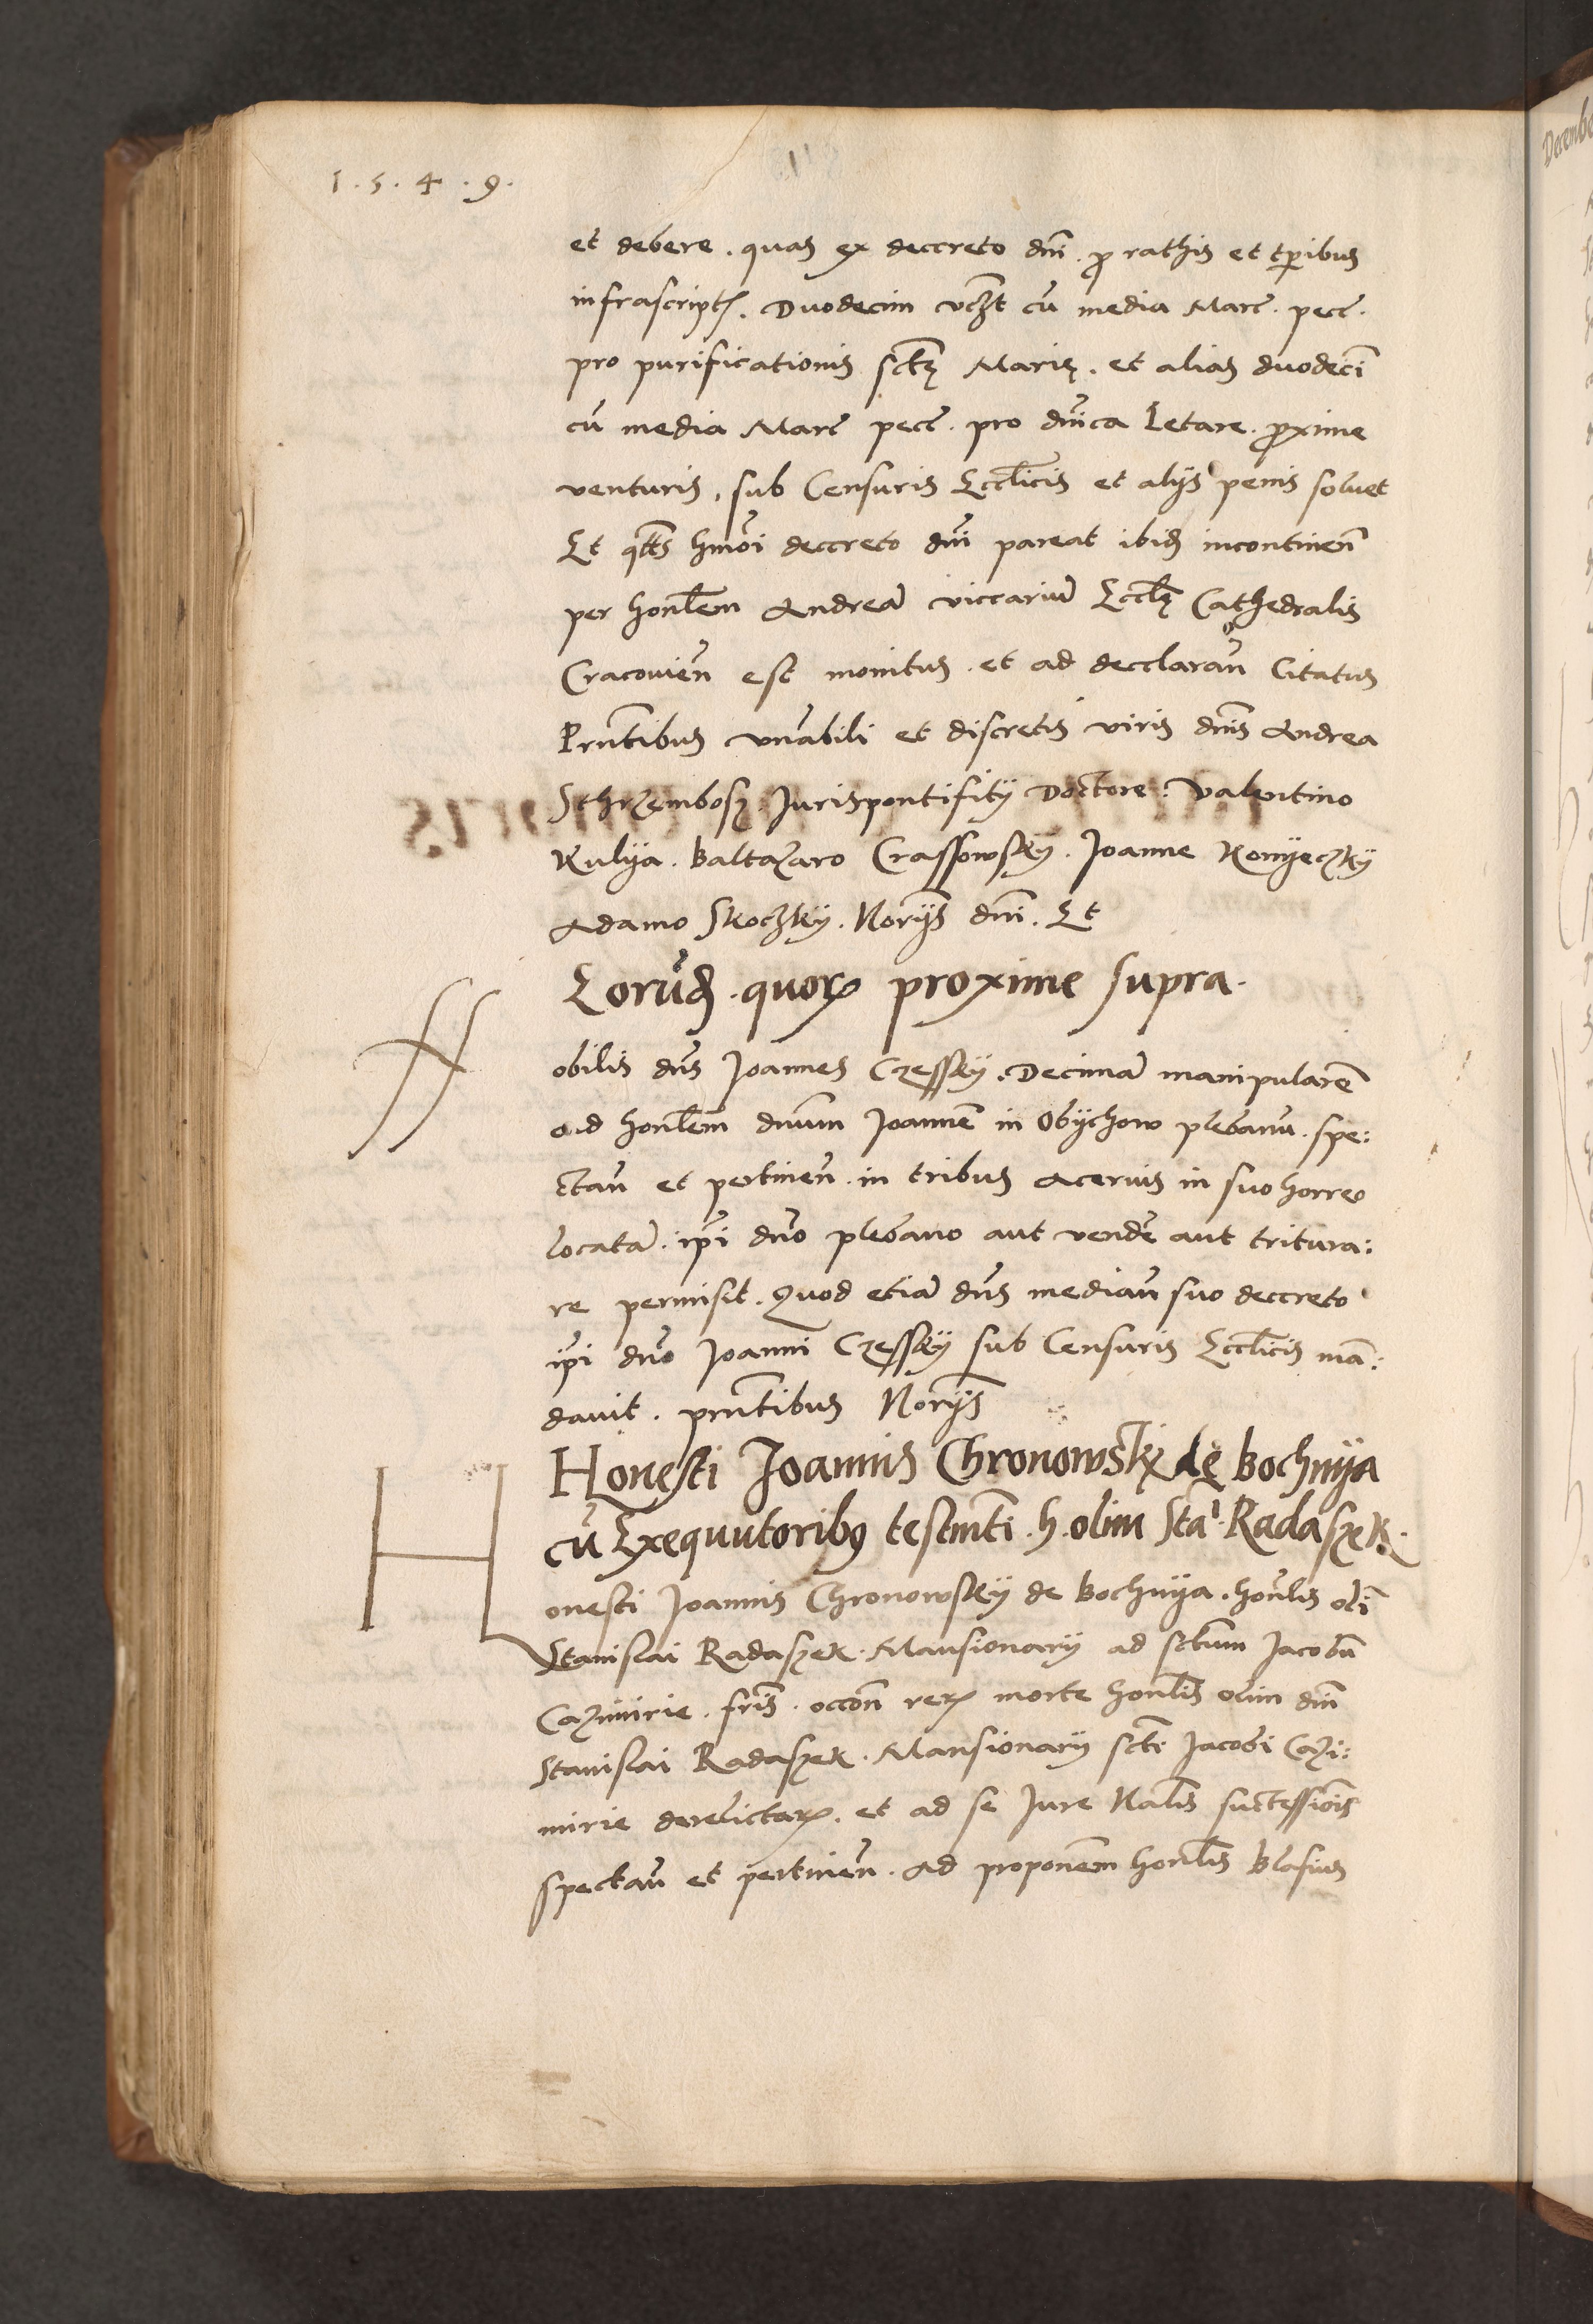 1.5.4.9.
et debere. quas ex decreto dñi. pro rathis et tp̃ibus
infrascriptꝭ. Duodecim vcʒt cũ media Marc̃. pec̃.
pro purificationis sctę Marię. et alias duodeci̅
cũ media Marc̃ pec̃. pro dñica Letare. proxime
venturis, sub Censuris Eccl̃icis et alÿs penis soluet
Et qt̃s hmõi decreto dñi pareat ibid̃ incontinen̅
per honl̃em Andreã viccariũ Eccl̃ę Cathedralis
Cracouien̅ est monitus. et ad decclaran̅ Citatus
Prñtibus vñabili et discretis viris dñis Andrea
Sthrzembosz. Jurispontificÿ Doctore: Valentino
Kulÿa. Baltazaro Crassowskÿ. Joanne Konÿeczkÿ
Adamo Skoczkÿ. Norÿs dñi. Et
Eorũd̃. quoꝝ proxime supra.
N
obilis dñs Joannes Czesskÿ. Decimã manipularẽ
ad honl̃em dñum Joannẽ in Obÿchow plebanũ. spe:
ctañ et pertineñ. in tribus Aceruis in suo horreo
locatã. ip̃i dño plebano aut vendẽ aut tritura:
re permisit. Quod etiã dñs mediañ suo decreto
ip̃i dño Joanni Czesskÿ sub Censuris Eccl̃icis mã:
dauit. prñtibus Norÿs
Honesti Joannis Chronowskÿ de Bochnÿa
cũ Exequutoribꝰ testmñti. h. olim Sta. Radaszek.
H
onesti Joannis Chronowskÿ de Bochnÿa. honl̃is oli̅
Stanislai Radaszek. Mansionarÿ ad sctum Jacobũ
Cazimirie. fris̃. occõn reꝝ morte honl̃is olim dñi
Stanislai Radaszek. Mansionarÿ scti Jacobi Cazi:
mirie derelictaꝝ. et ad se Jure Nal̃is successiõis
spectañ et pertineñ. Ad proponẽm honl̃is Blasius